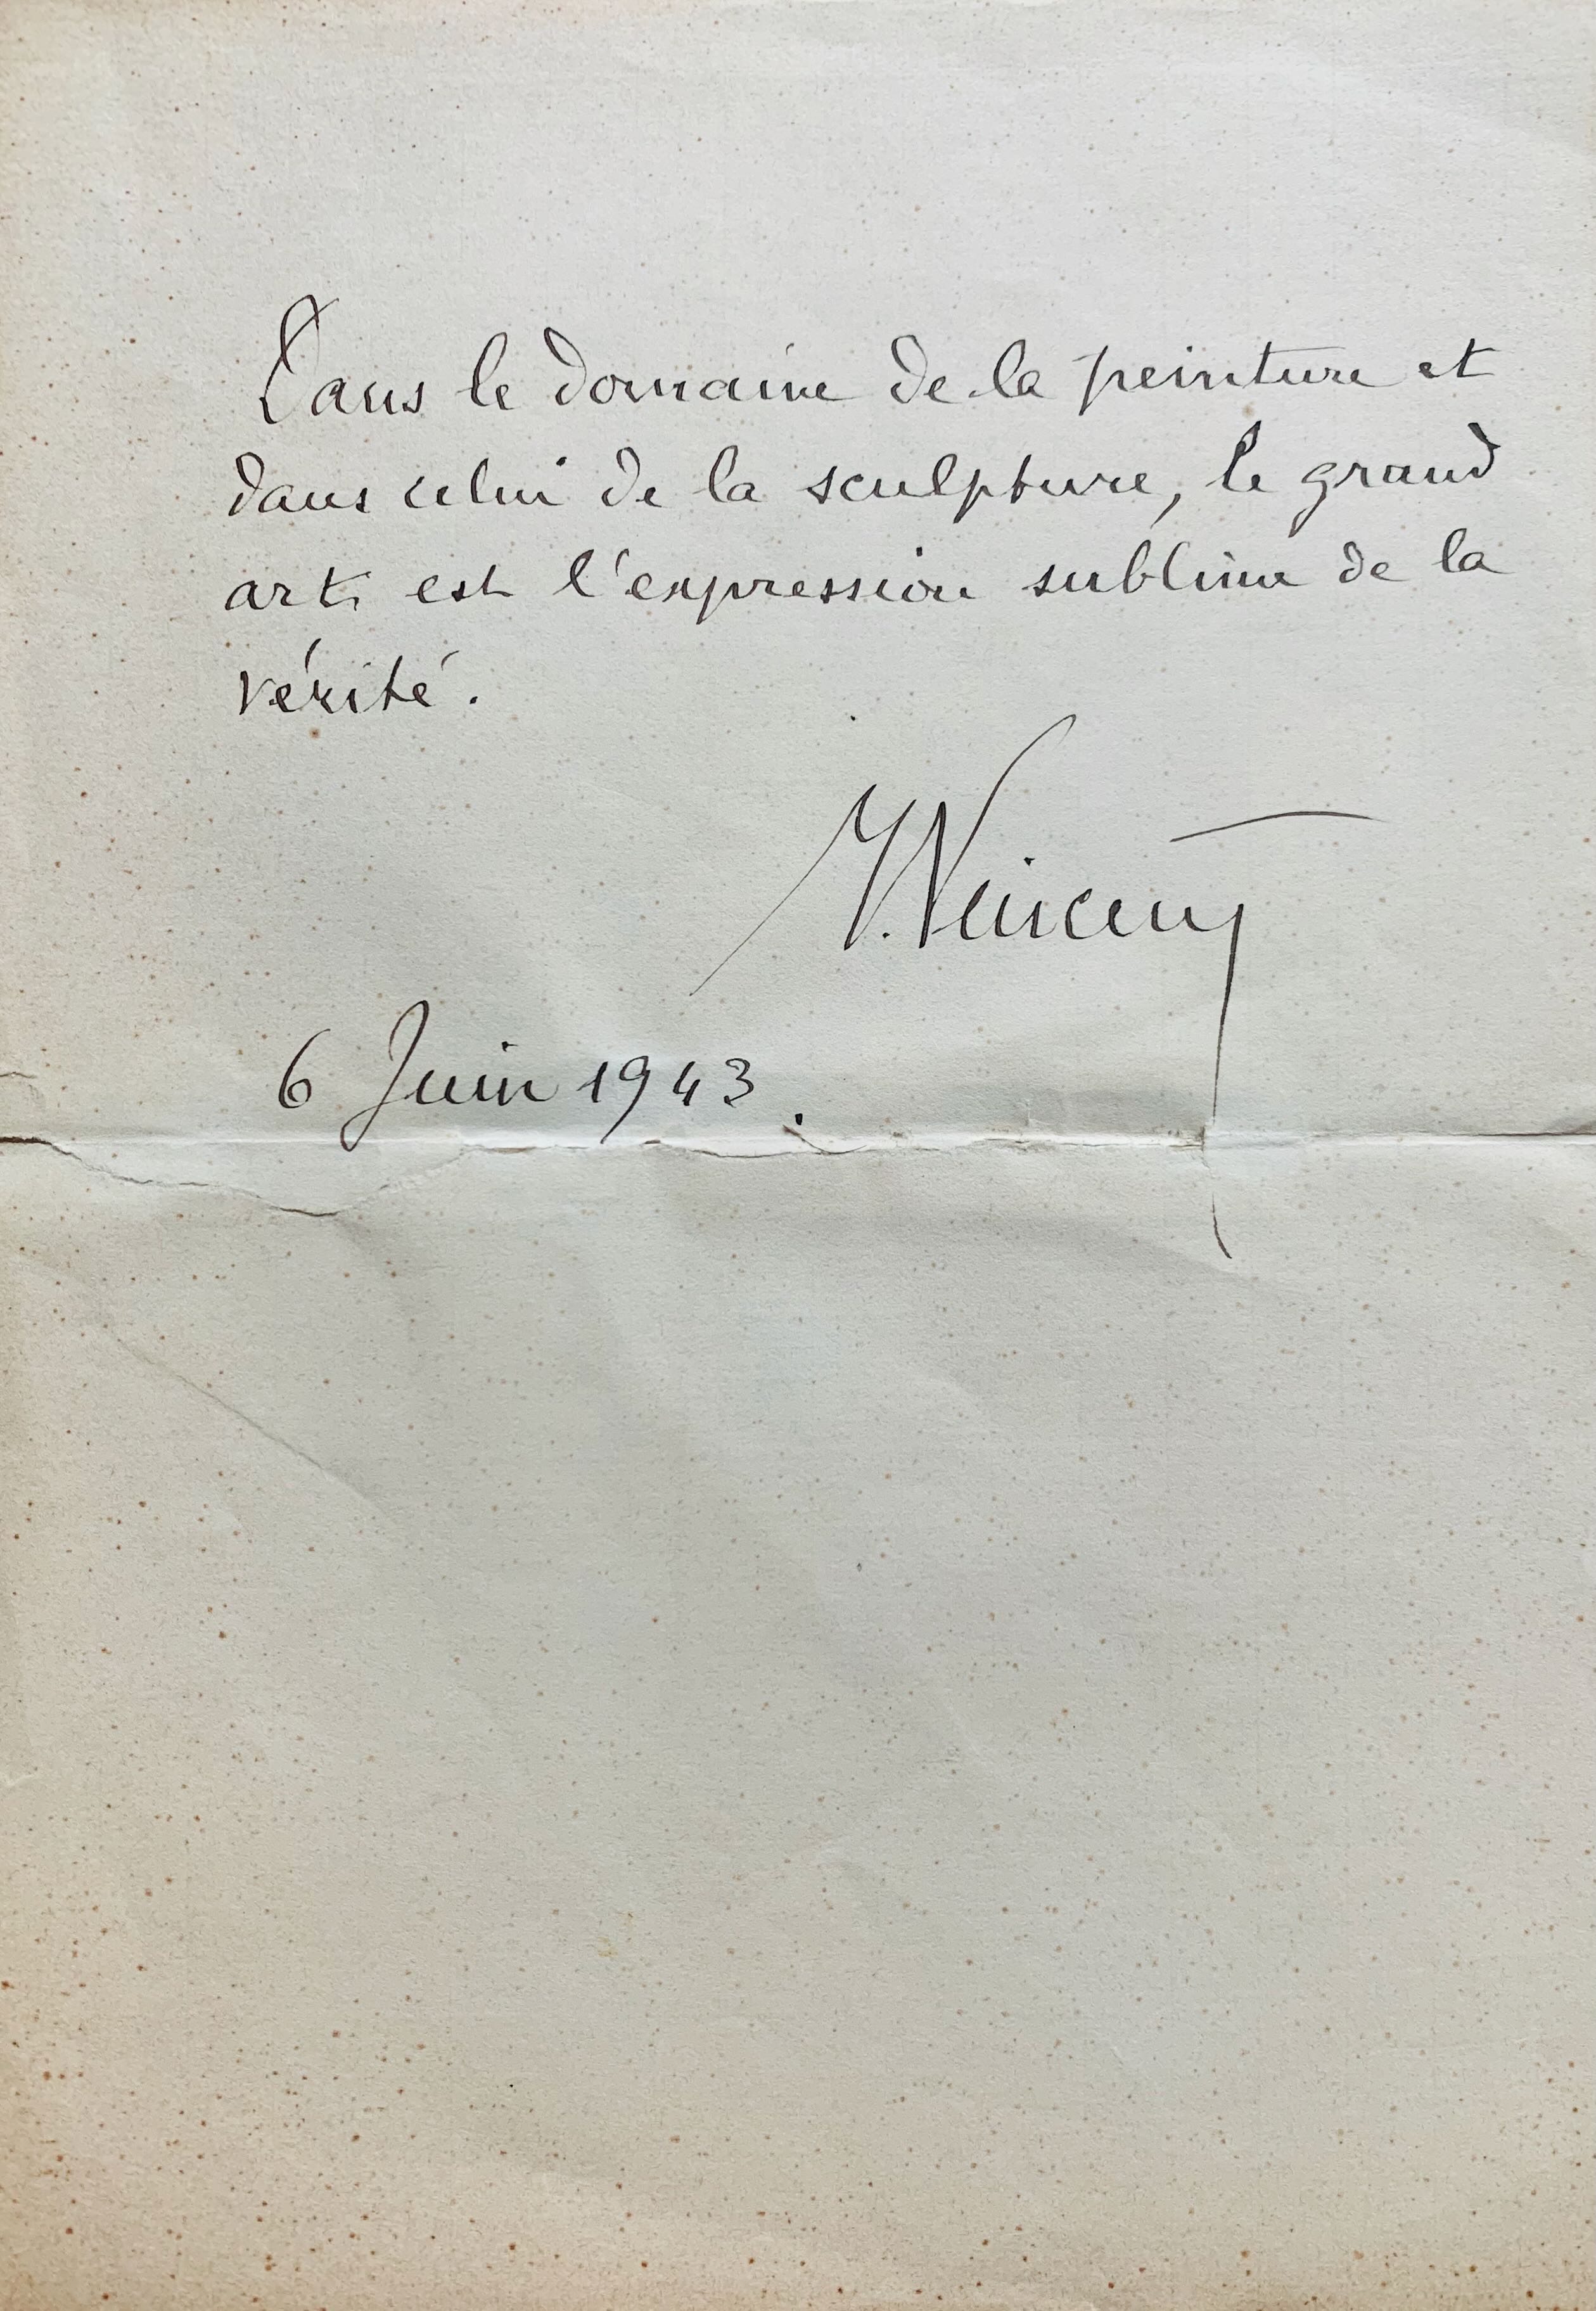 Dans le domaine de la peinture et
dans celui de la sculpture, le grand
art est l'expression sublime de la
vérité.
6 Juin 1943.